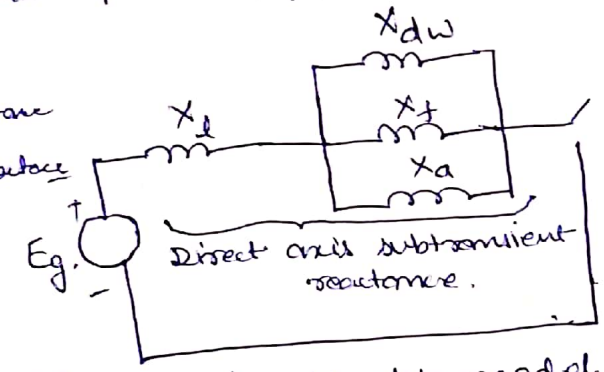 X_dw
X_l
X_f
X_a
+
Eg.
-
Direct axis subtransient
reactance.